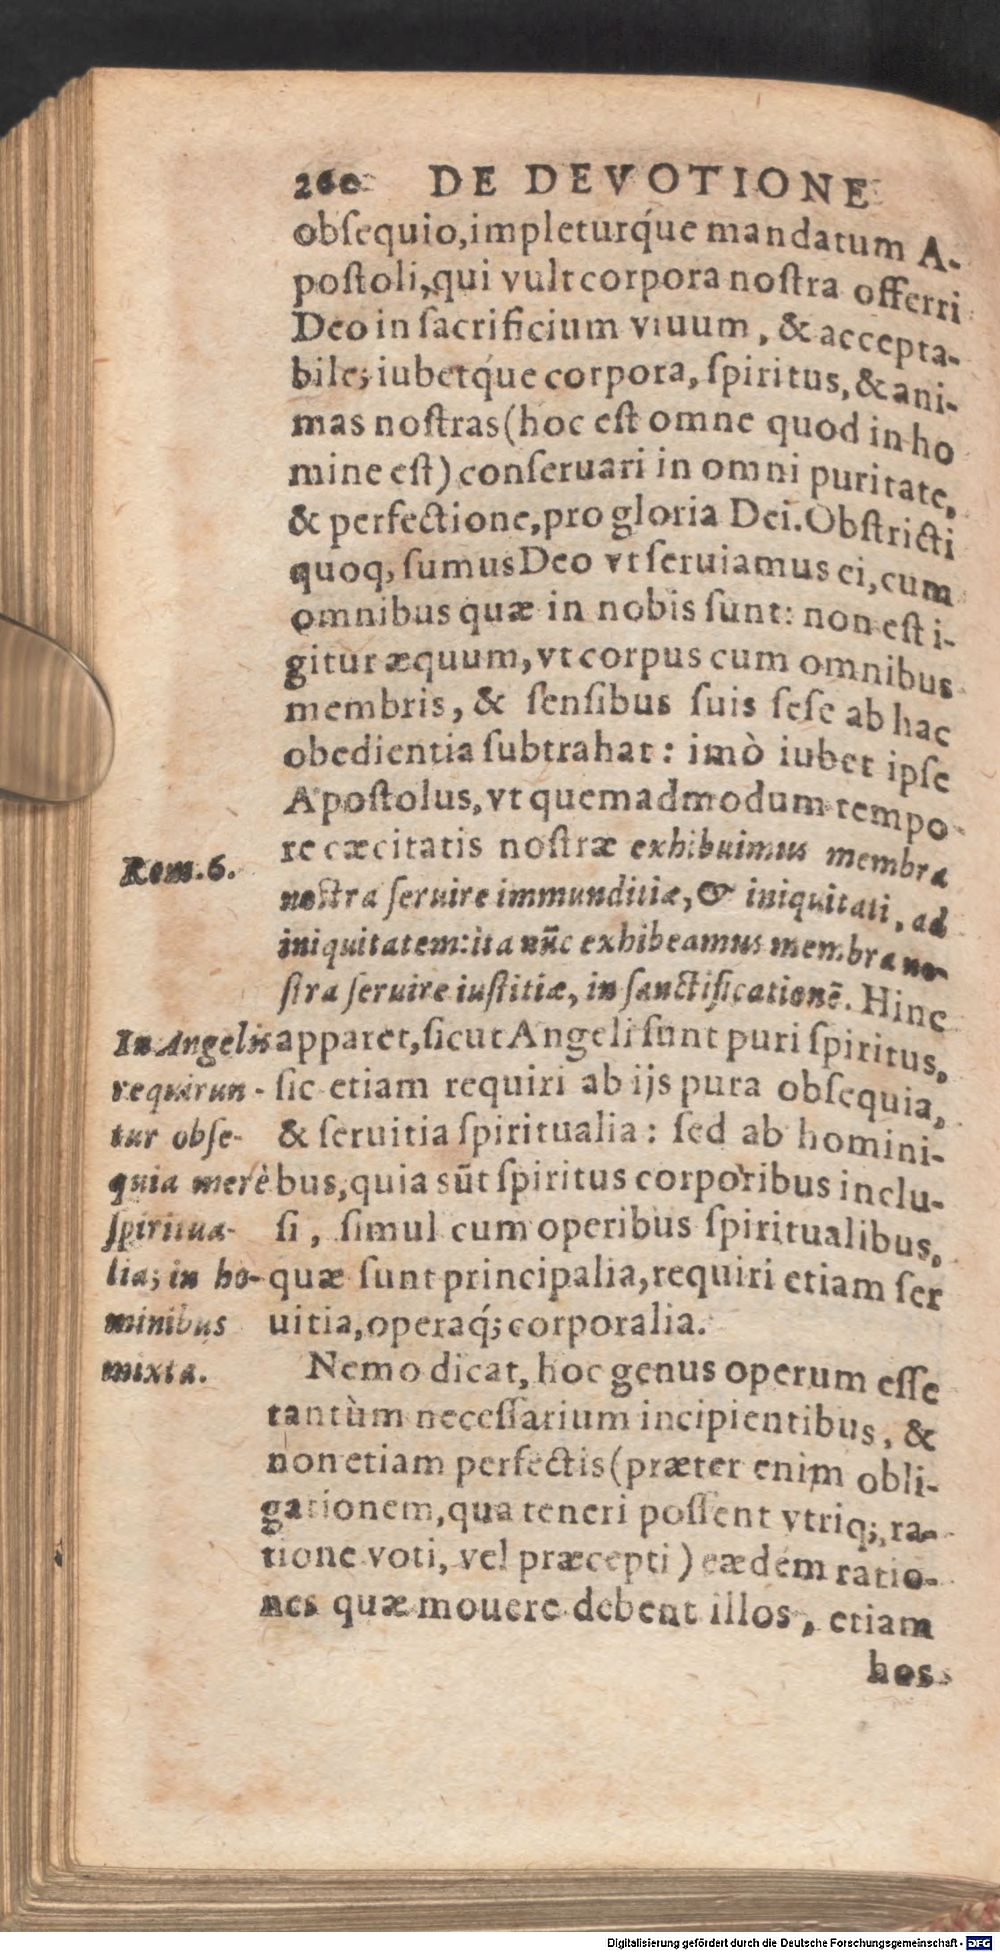 260 DE DEVOTIONE
obſequio, impleturq́ue mandatum A-
poſtoli, qui vult corpora noſtra offerri
Deo in ſacrificium viuum, & accepta-
bile; iubetq́ue corpora, ſpiritus, & ani-
mas noſtras (hoc eſt omne quod in ho
mine eſt) conſeruari in omni puritate,
& perfectione, pro gloria Dei. Obſtricti
quoq; ſumus Deo vt ſeruiamus ei, cum
omnibus quæ in nobis ſunt: non eſt i-
gitur æquum, vt corpus cum omnibus
membris, & ſenſibus ſuis ſeſe ab hac
obedientia ſubtrahat: imò iubet ipſe
Apoſtolus, vt quemadmodum tempo-
re cæcitatis noſtræ exhibuimus membra
Rom. 6.
noſtra ſeruire immunditiæ, & iniquitati, ad
iniquitatem: ita nũc exhibeamus membra no-
ſtra ſeruire iuſtitiæ, in ſanctificationẽ. Hinc
apparet, ſicut Angeli ſunt puri ſpiritus,
ſic etiam requiri ab ijs pura obſequia,
& ſeruitia ſpiritualia: ſed ab homini-
bus, quia sũt ſpiritus corporibus inclu-
ſi, ſimul cum operibus ſpiritualibus,
quæ ſunt principalia, requiri etiam ſer
uitia, operaq́; corporalia.
In Angelis
requirun-
tur obſe-
quia merè
ſpiritua-
lia; in ho-
minibus
mixta.
Nemo dicat, hoc genus operum eſſe
tantùm neceſſarium incipientibus, &
non etiam perfectis (præter enim obli-
gationem, qua teneri poſſent vtriq;, ra-
tione voti, vel præcepti) eædem ratio-
nes quæ mouere debent illos, etiam
hos
Digitalisierung gefördert durch die Deutsche Forschungsgemeinschaft - DFG